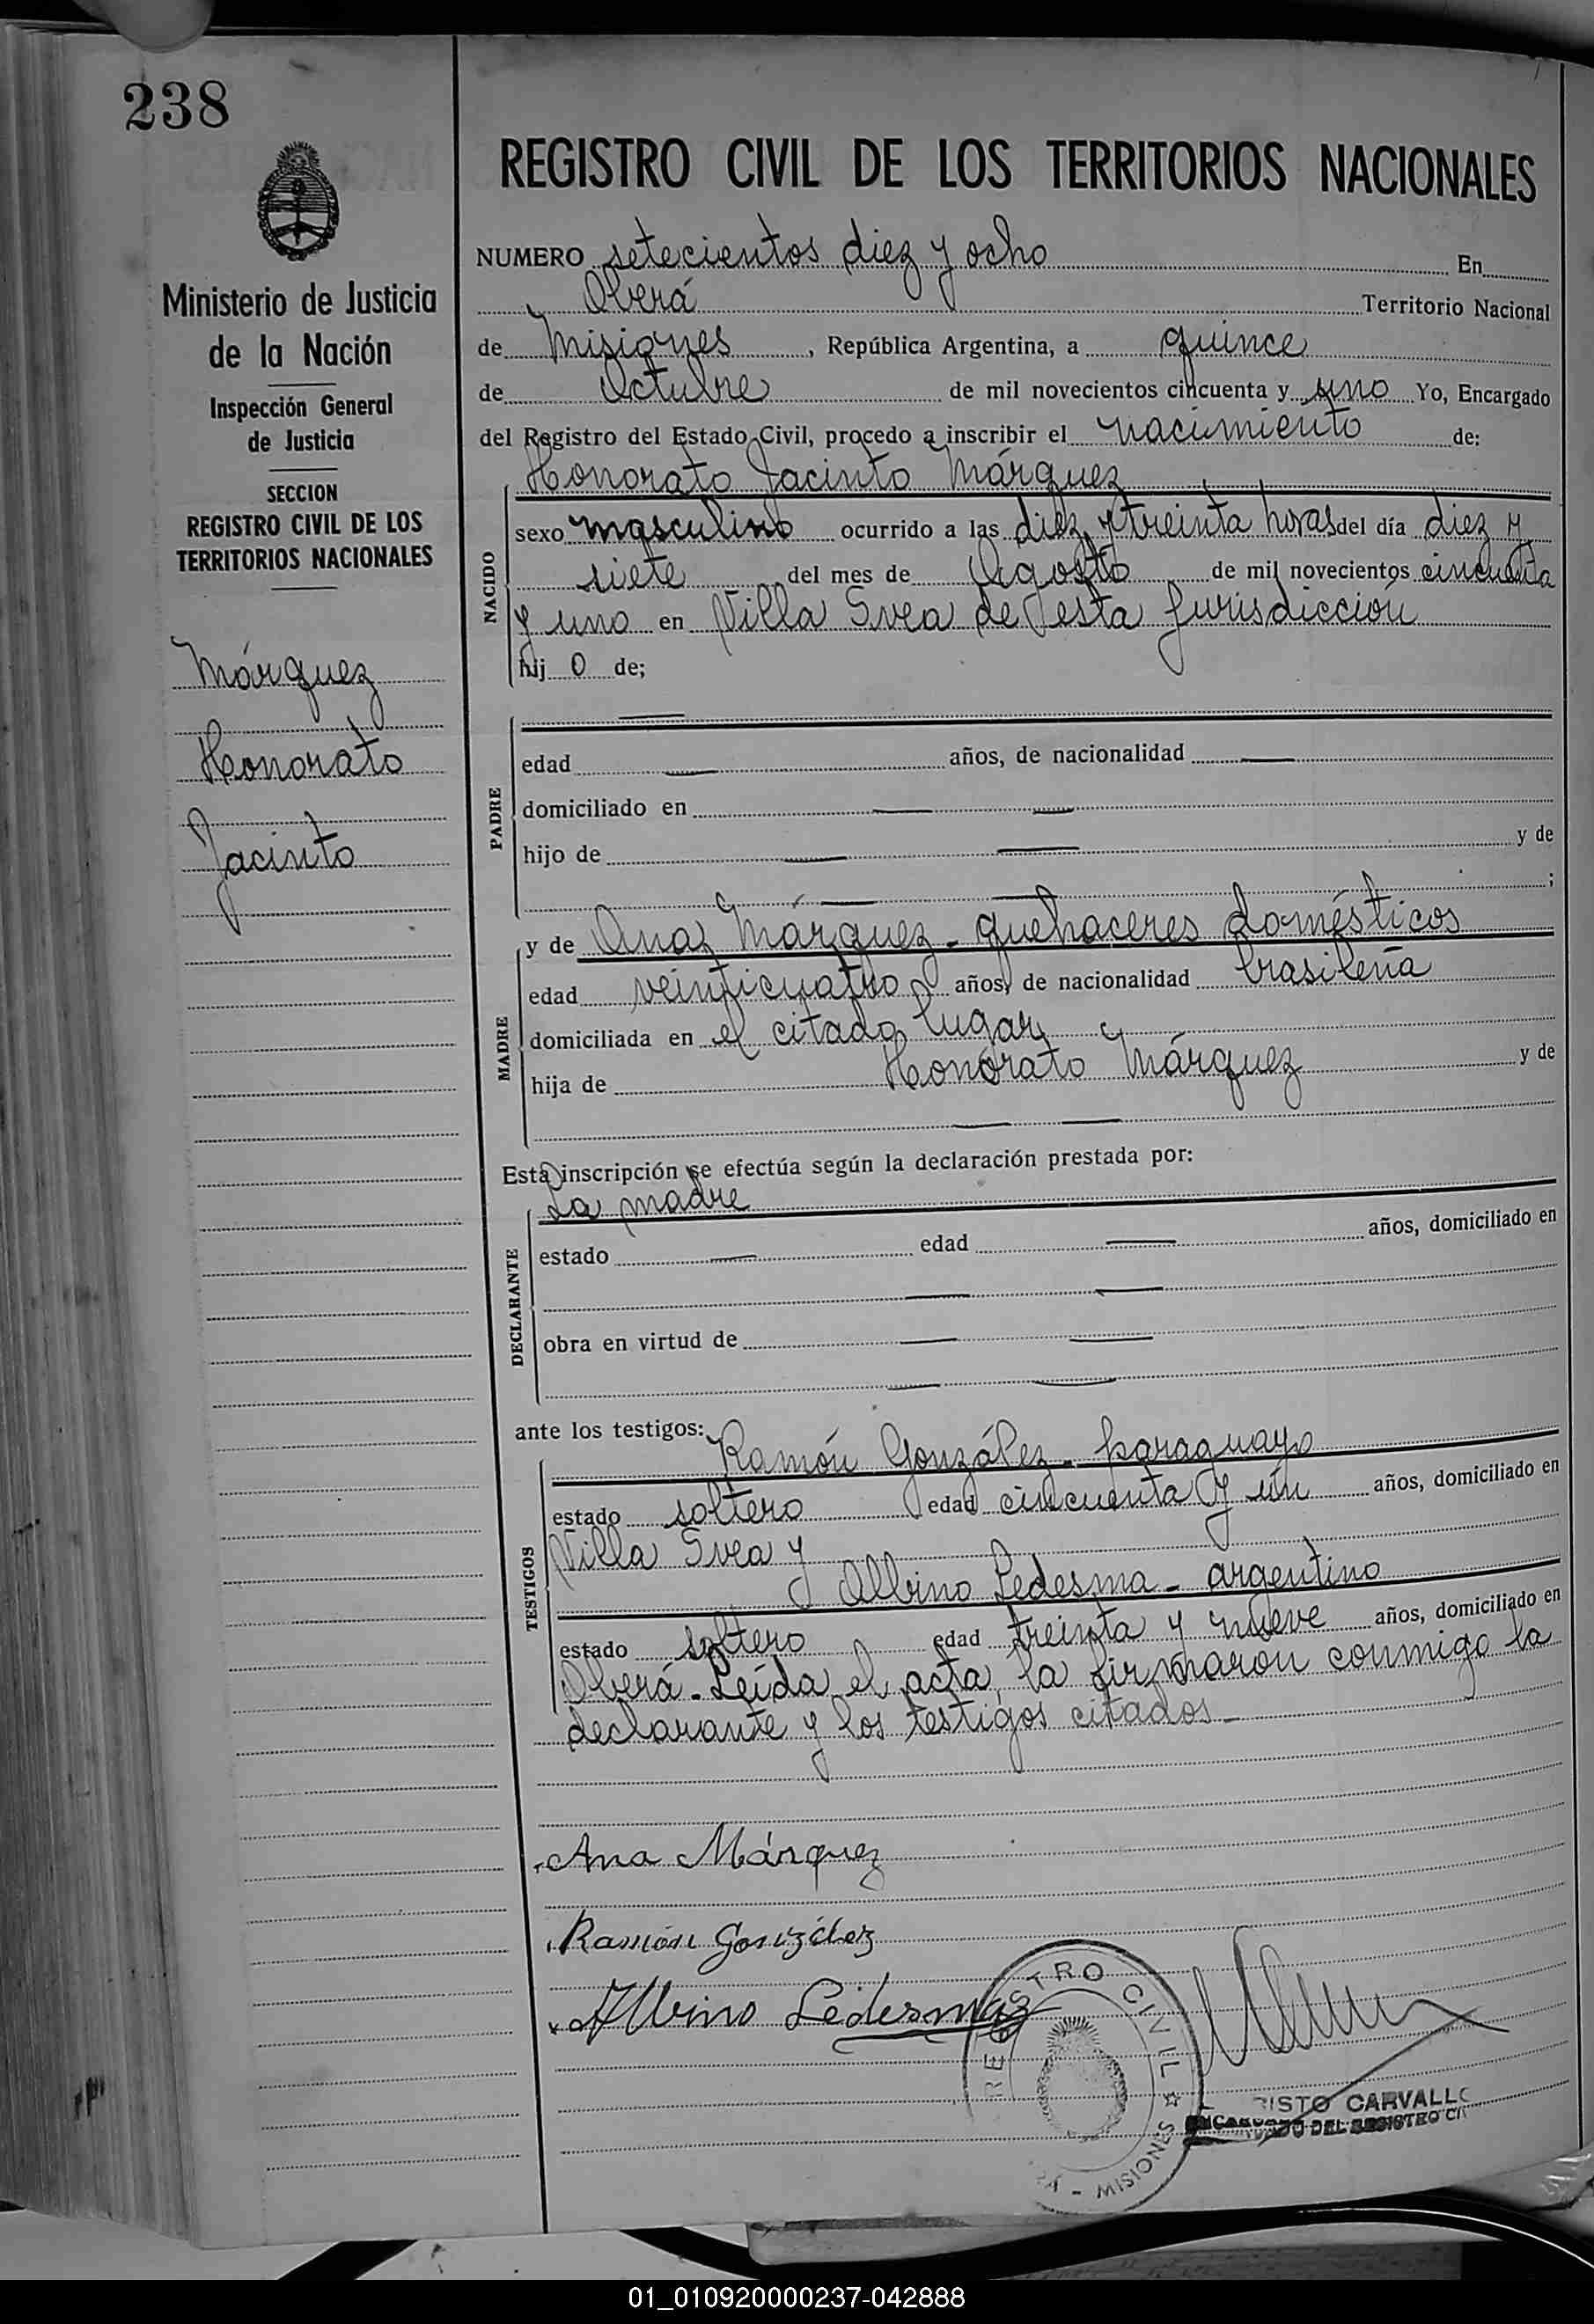 238
REGISTRO CIVIL DE LOS TERRITORIOS NACIONALES
Ministerio de Justicia
de la Nación
Inspección General
de Justicia
SECCION
REGISTRO CIVIL DE LOS
TERRITORIOS NACIONALES
Márquez
Honorato
Jacinto
NUMERO setecientos diez y ocho En
Oberá Territorio Nacional
de Misiones, República Argentina, a quince
de Octubre de mil novecientos cincuenta y uno Yo, Encargado
del Registro del Estado Civil, procedo a inscribir el nacimiento de:
Honorato Jacinto Márquez
NACIDO
sexo masculino ocurrido a las diez y treinta horas del día diez y
siete del mes de Agosto de mil novecientos cincuenta
y uno en Villa Svea de esta jurisdicción
hij o de;
PADRE
edad años, de nacionalidad
domiciliado en
hijo de y de
;
MADRE
y de Ana Márquez - quehaceres domésticos
edad veinticuatro años, de nacionalidad brasileña
domiciliada en el citado lugar
hija de Honorato Márquez y de
Esta inscripción se efectúa según la declaración prestada por:
La madre
DECLARANTE
estado edad años, domiciliado en
obra en virtud de
ante los testigos:
Ramón González - paraguayo
TESTIGOS
estado soltero edad cincuenta y un años, domiciliado en
Villa Svea y
Albino Ledesma - argentino
estado soltero edad treinta y nueve años, domiciliado en
Oberá - Leída el acta, la firmaron conmigo la
declarante y los testigos citados -
Ana Márquez
Ramón González
Albino Ledesma
REGISTRO CIVIL ☆
MISIONES -
RISTO CARVALLO
ENCARGADO DEL REGISTRO CI
01_010920000237-042888